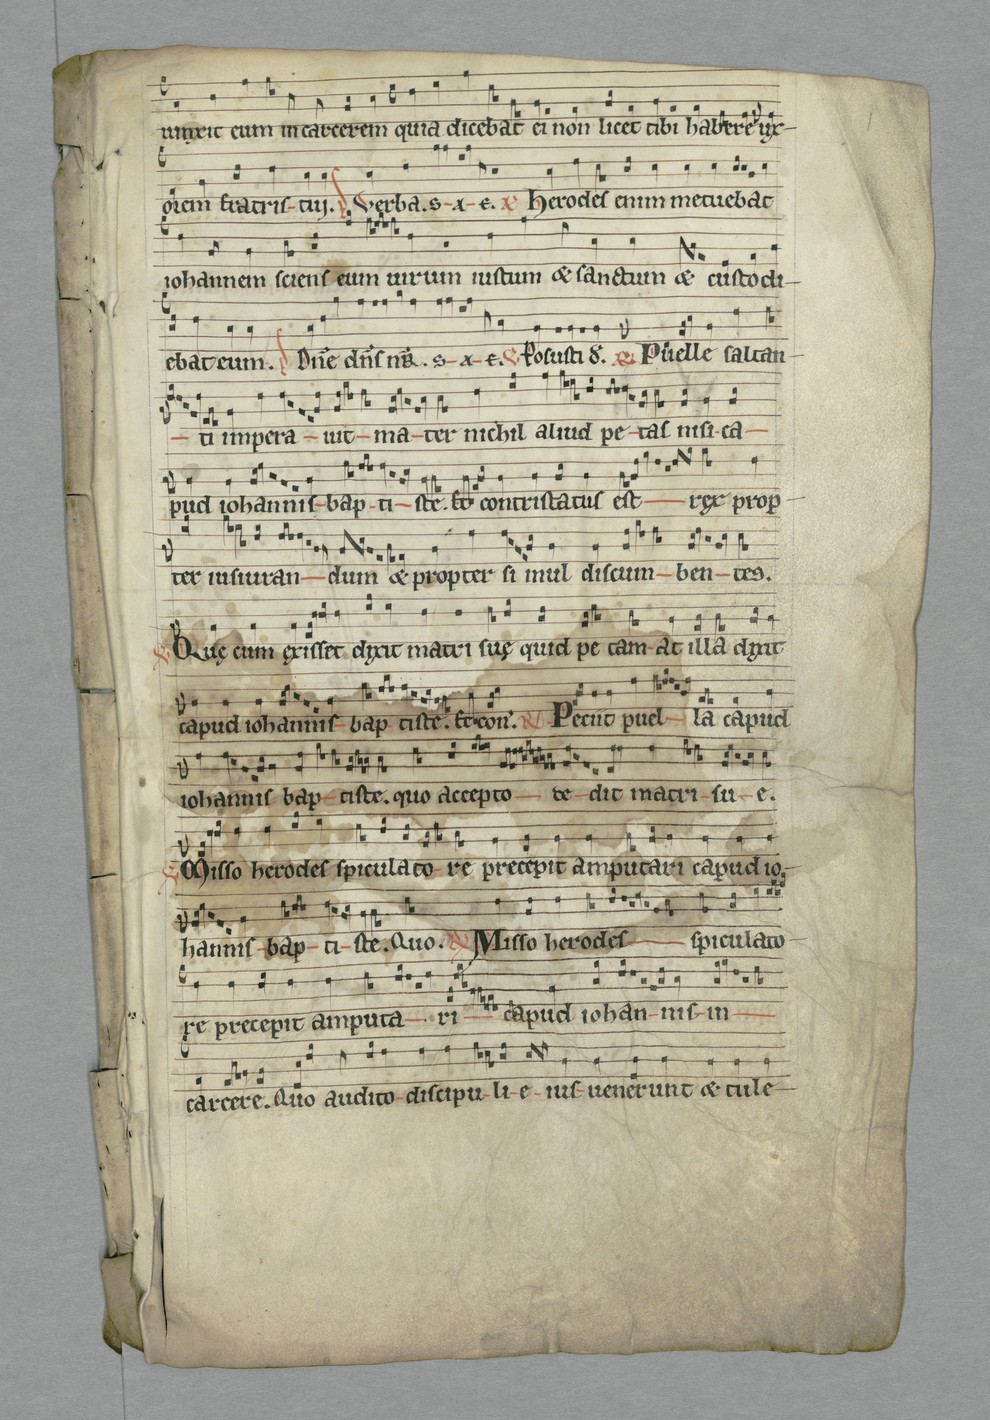 uinxit eum in carcerem quia dicebat ei non licet tibi habere ux-
orem fratris tui. Verba. s- a- e. Herodes enim metuebat
iohannem sciens eum uirum iustum & sanctum & custodi-
ebat eum. Dn̄e dn̄s nr̄. s- a- e. Posuisti d̄. Puelle saltan-
- ti impera - uit - ma - ter nichil aliud pe - tas nisi - ca -
pud iohannis - bap - ti - ste. Et contristatus est - rex prop-
ter iusiuran - dum & propter si mul discum - ben - tes.
Quę cum exisset dixit matri suę quid pe tam - at illa dixit
capud iohannis - bap tiste. Et con. Petiit puel - la capud
iohannis bap - tiste. quo accepto - de - dit matri - su - e.
Misso herodes spiculato - re precepit amputari capud io-
hannis - bap - ti - ste. Quo. Misso herodes - spiculato-
re precepit amputa - ri - capud iohan - nis - in -
carcere. Quo audito - discipu - li - e - ius - uenerunt & tule-